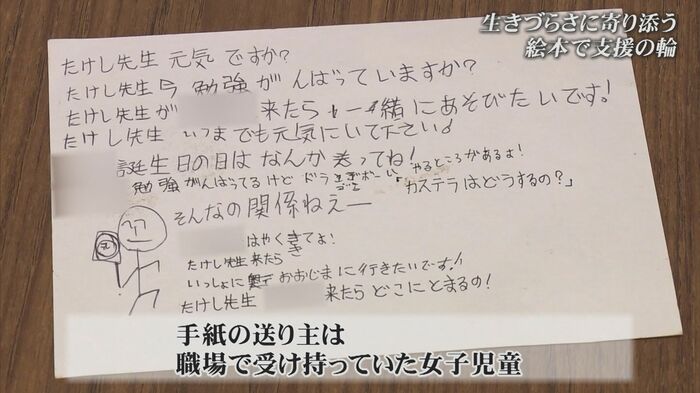 生きづらさに寄り添う
絵本で支援の輪
たけし先生 元気ですか?
たけし先生今 勉強がんばっていますか?
たけし先生が 来たら 一緒にあそびたいです!
たけし先生 いつまでも元気にいて下さい。
誕生日の日はなんか送ってね!
勉強がんばってるけど ドラゴンボール やるところがあるよ!
「カステラはどうするの?」
そんなの関係ねえー
はやくきてよ!
き
たけし先生来たら
いっしょに おおじまに行きたいです!
たけし先生 来たら どこにとまるの!
手紙の送り主は
職場で受け持っていた女子児童